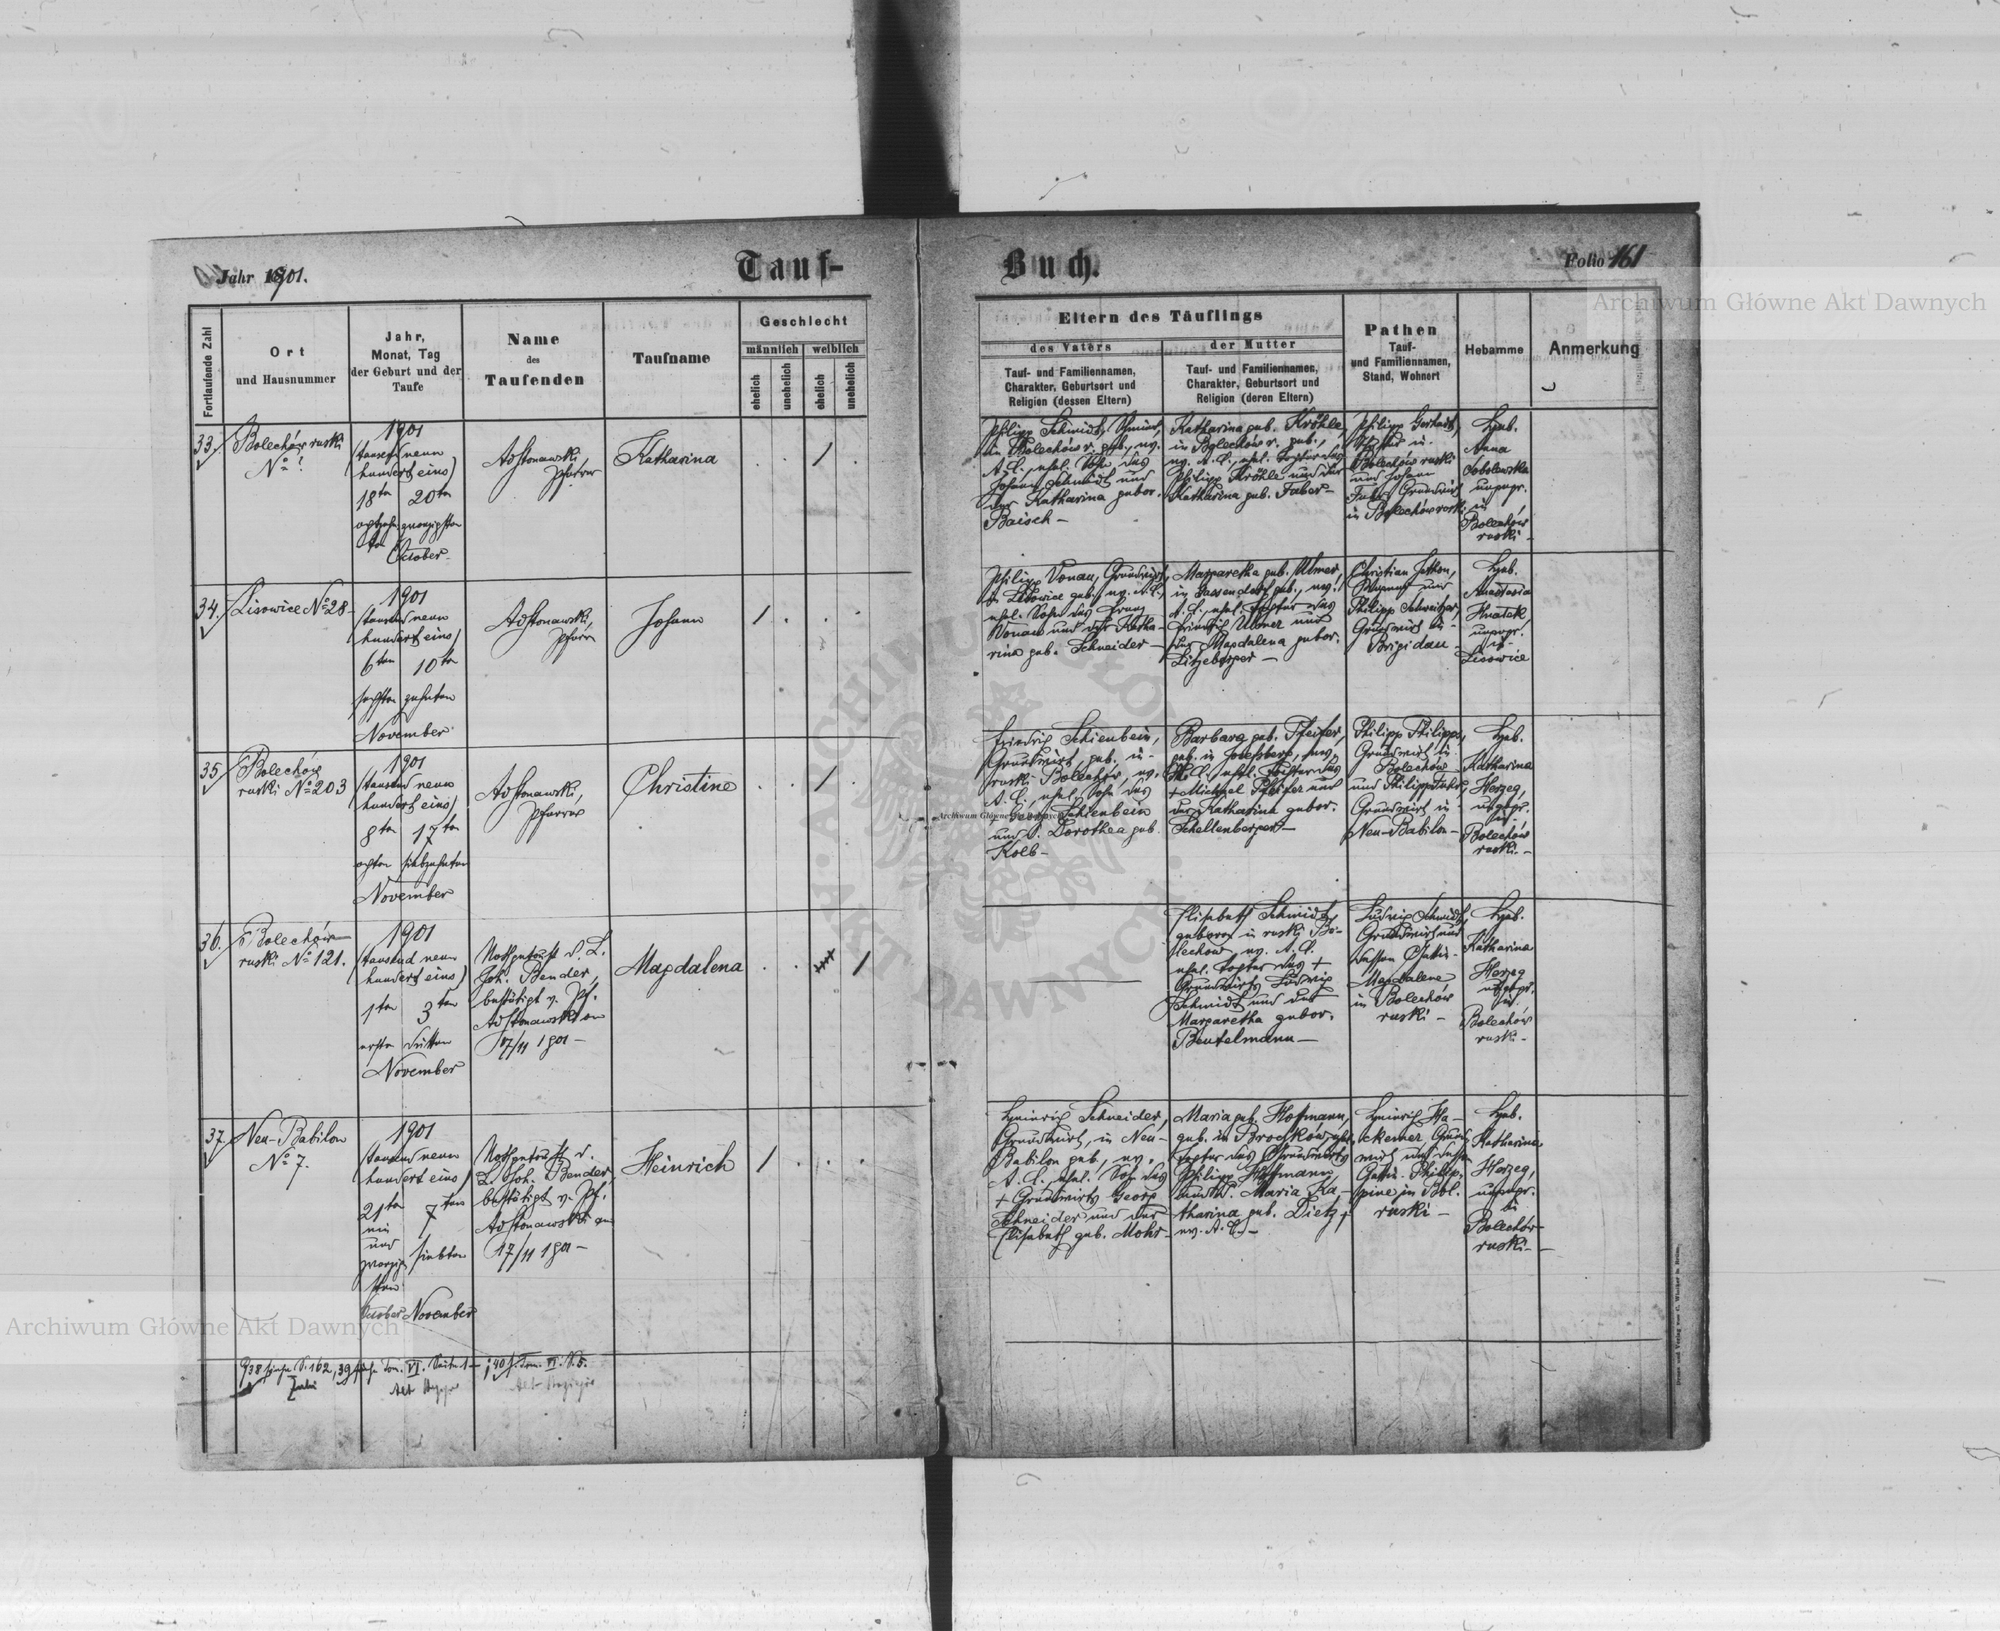 Jahr 1901.
Tauf-
Buch.
Folio 161
Archiwum Główne Akt Dawnych
Fortlaufende Zahl
Ort
und Hausnummer
Jahr,
Monat, Tag
der Geburt und der
Taufe
Name
des
Taufenden
Taufname
Geschlecht
männlich
weiblich
ehelich
unehelich
ehelich
unehelich
Eltern des Täuflings
des Vaters
Tauf- und Familiennamen,
Charakter, Geburtsort und
Religion (dessen Eltern)
der Mutter
Tauf- und Familiennamen,
Charakter, Geburtsort und
Religion (deren Eltern)
Pathen
Tauf-
und Familiennamen,
Stand, Wohnort
Hebamme
Anmerkung
33.
Bolechów ruski
No
1901
(tausend neun
hundert eins)
18ten 20ten
October
Pfarrer
Katharina
Philipp Schmidt,
in Bolechów r. geb., ev.
A. C., ehel. Sohn des
Johann Schmidt und
der Katharina gebor.
Baisch -
Katharina geb. Kröhle,
in Bolechów r. geb.,
ev. A. C., ehel. Tochter des
Philipp Kröhle und der
Katharina geb. Faber -
Philipp
Bolechów ruski
und Johann
Grundwirt
in Bolechów ruski
Heb.
Anna
Sobolewska
ungepr.
in
Bolechów
ruski -
34.
Lisowice No 28 -
1901
(tausend neun
hundert eins)
6ten 10ten
sechsten zehnten
November
Pfarrer
Johann
Philipp Vonau, Grundwirt,
in Lisowice geb., ev. A. C.,
ehel. Sohn des Franz
Vonau und der Katha-
rina geb. Schneider -
Margaretha geb. Ulmer,
in Gassendorf geb., ev.
A. C., ehel. Tochter des
Friedrich Ulmer und
der Magdalena gebor.
Christian
und
Philipp Schweitzer,
Grundwirt in
Brigidau -
Heb.
Anastasia
ungepr.
in
Lisowice
35
Bolechów
ruski No 203
1901
(tausend neun
hundert eins)
8ten 17ten
achten siebzehnten
November
Pfarrer
Christine
Friedrich Schienbein,
Grundwirt, geb. in
ruski Bolechów, ev.
A. C., ehel. Sohn des
Schienbein
und d. Dorothea geb.
Kolb -
Barbara geb. Pfeifer,
geb. in Josefsberg, ev.
A. C., ehel. Tochter des
+ Michael Pfeifer und
der Katharina gebor.
Schellenberger -
Philipp Philipps,
Grundwirt in
Bolechów
und Philipp
Grundwirt in
Neu-Babilon -
Heb.
Katharina
Herzeg,
ungepr.
in
Bolechów
ruski. -
36.
Bolechów
ruski No 121.
1901
(tausend neun
hundert eins)
1ten 3ten
ersten dritten
November
Nothgetauft d. L.
Joh. Bender,
bestätigt v. Pf.
17/11 1901 -
Magdalena
Elisabeth Schmidt,
geboren in ruski Bo-
lechow, ev. A. C.
ehel. Tochter des +
Grundwirts Ludwig
Schmidt und der
Margaretha gebor.
Beutelmann -
Ludwig Schmidt,
Grundwirt und
dessen Gattin
Magdalene
in Bolechów
ruski -
Heb.
Katharina
Herzeg
ungepr.
in
Bolechów
ruski -
37.
Neu-Babilon
No 7.
1901
(tausend neun
hundert eins)
21ten 7ten
ein
und
zwanzig siebten
sten
October November
Nothgetauft d.
L. Joh. Bender,
bestätigt v. Pf.
17/11 1901 -
Heinrich
Heinrich Schneider,
Grundwirt, in Neu-
Babilon geb., ev.
A. C. ehel. Sohn des
+ Grundwirts Georg
Schneider und der
Elisabeth geb. Mohr -
Maria geb. Hoffmann,
geb. in Broczków, ehel.
Tochter des Grundwirts
Philipp Hoffmann
und d. Maria Ka-
tharina geb. Dietz,
ev. A. C. -
Heinrich Ha-
ckemer, Grund-
wirt und dessen
Gattin Philip-
pine in Bol.
ruski -
Heb.
Katharina
Herzeg,
ungepr.
in
Bolechów
ruski -
38 siehe S. 162, 39 siehe Tom. VI. Seite 1 - 40 s. Tom. VI. S. 5.
Archiwum Główne Akt Dawnych
Archiwum Główne Akt Dawnych
ARCHIWUM GŁÓWNE AKT DAWNYCH